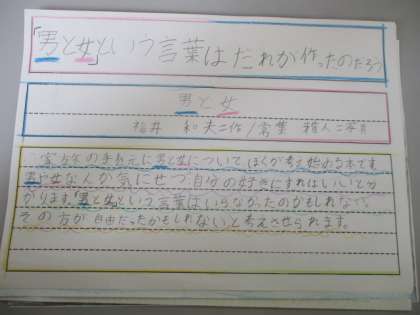 「男と女」という言葉はだれが作ったのだろう
男と女
福井 和夫=作/
家族の手紙元に男と女についてぼくが考え始める本です。
男や女なんか気にせづ自分の好きにすればいいとわ
かります。「男と女」という言葉はいらなかったのかもしれなで。
その方が自由だったかもしれないと考えさせられます。